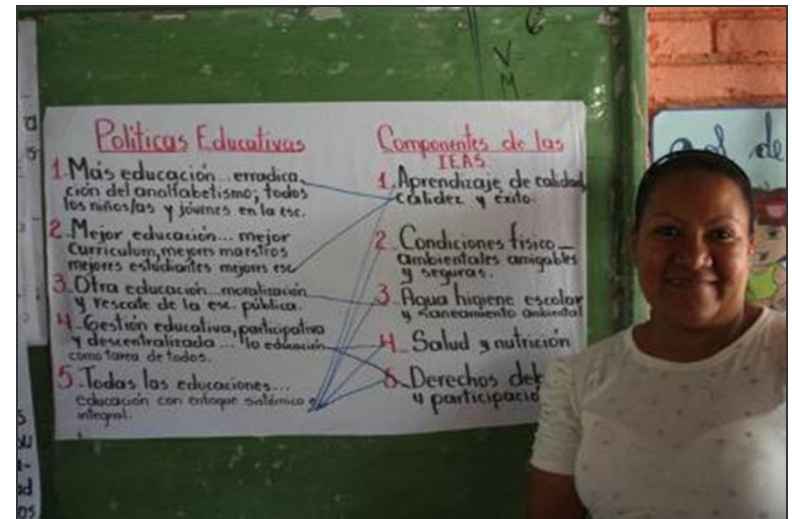 Políticas Educativas
1. Más educación... erradica
ción del analfabetismo; todos
los niños/as y jóvenes en la esc.
2. Mejor educación... mejor
Curriculum, mejores maestros
mejores estudiantes mejores esc
3. Otra educación... moralización
y rescate de la esc. pública.
4. Gestión educativa, participativa
y descentralizada... la educación
como tarea de todos.
5. Todas las educaciones...
educación con enfoque sistémico e
integral.
Componentes de las
IEAS.
1. Aprendizaje de calidad,
calidez y éxito.
2. Condiciones físico-
ambientales amigables
y seguras.
3. Agua higiene escolar
y saneamiento ambiental
4. Salud y nutrición
5. Derechos
y participació
V
M
de